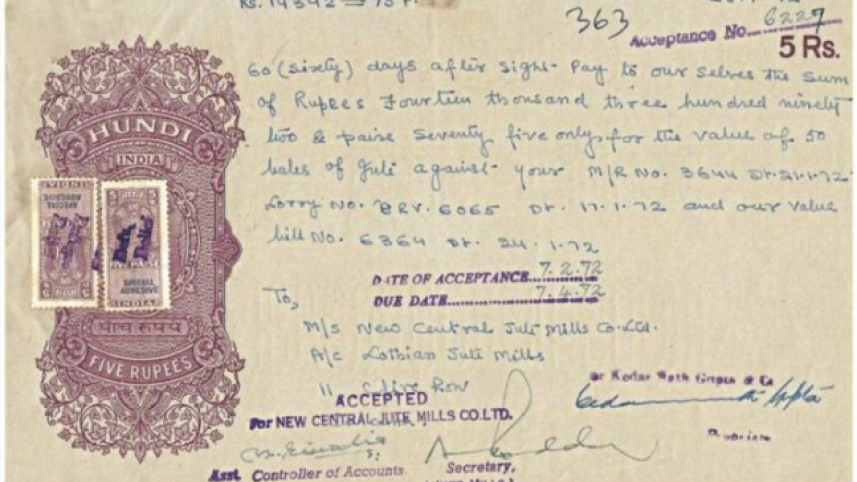 Rs. 14392 = 75 P.
363
Acceptance No. 6227
5 Rs.
60 (sixty) days after sight- Pay to our selves the sum
of Rupees Fourteen thousand three hundred ninety
two & paise Seventy five only, for the value of 50
bales of Jute against- your M/R No. 3644 Dt. 21.1.72
Lorry No. BRV. 6065 Dt. 17.1.72 and our value
bill No. 6364 Dt. 24.1.72
DATE OF ACCEPTANCE 7.2.72
DUE DATE 7.4.72
To,
M/s New Central Jute Mills Co. Ltd.
A/c Lothian Jute Mills
11 Clive Row
ACCEPTED
For NEW CENTRAL JUTE MILLS CO. LTD.
Asst. Controller of Accounts.
Secretary,
Kedar Nath Gupta & Co
HUNDI
INDIA
SPECIAL
ADHESIVE
INDIA
5
5
FIVE PAISE
SPECIAL
ADHESIVE
INDIA
पांच रूपये
FIVE RUPEES